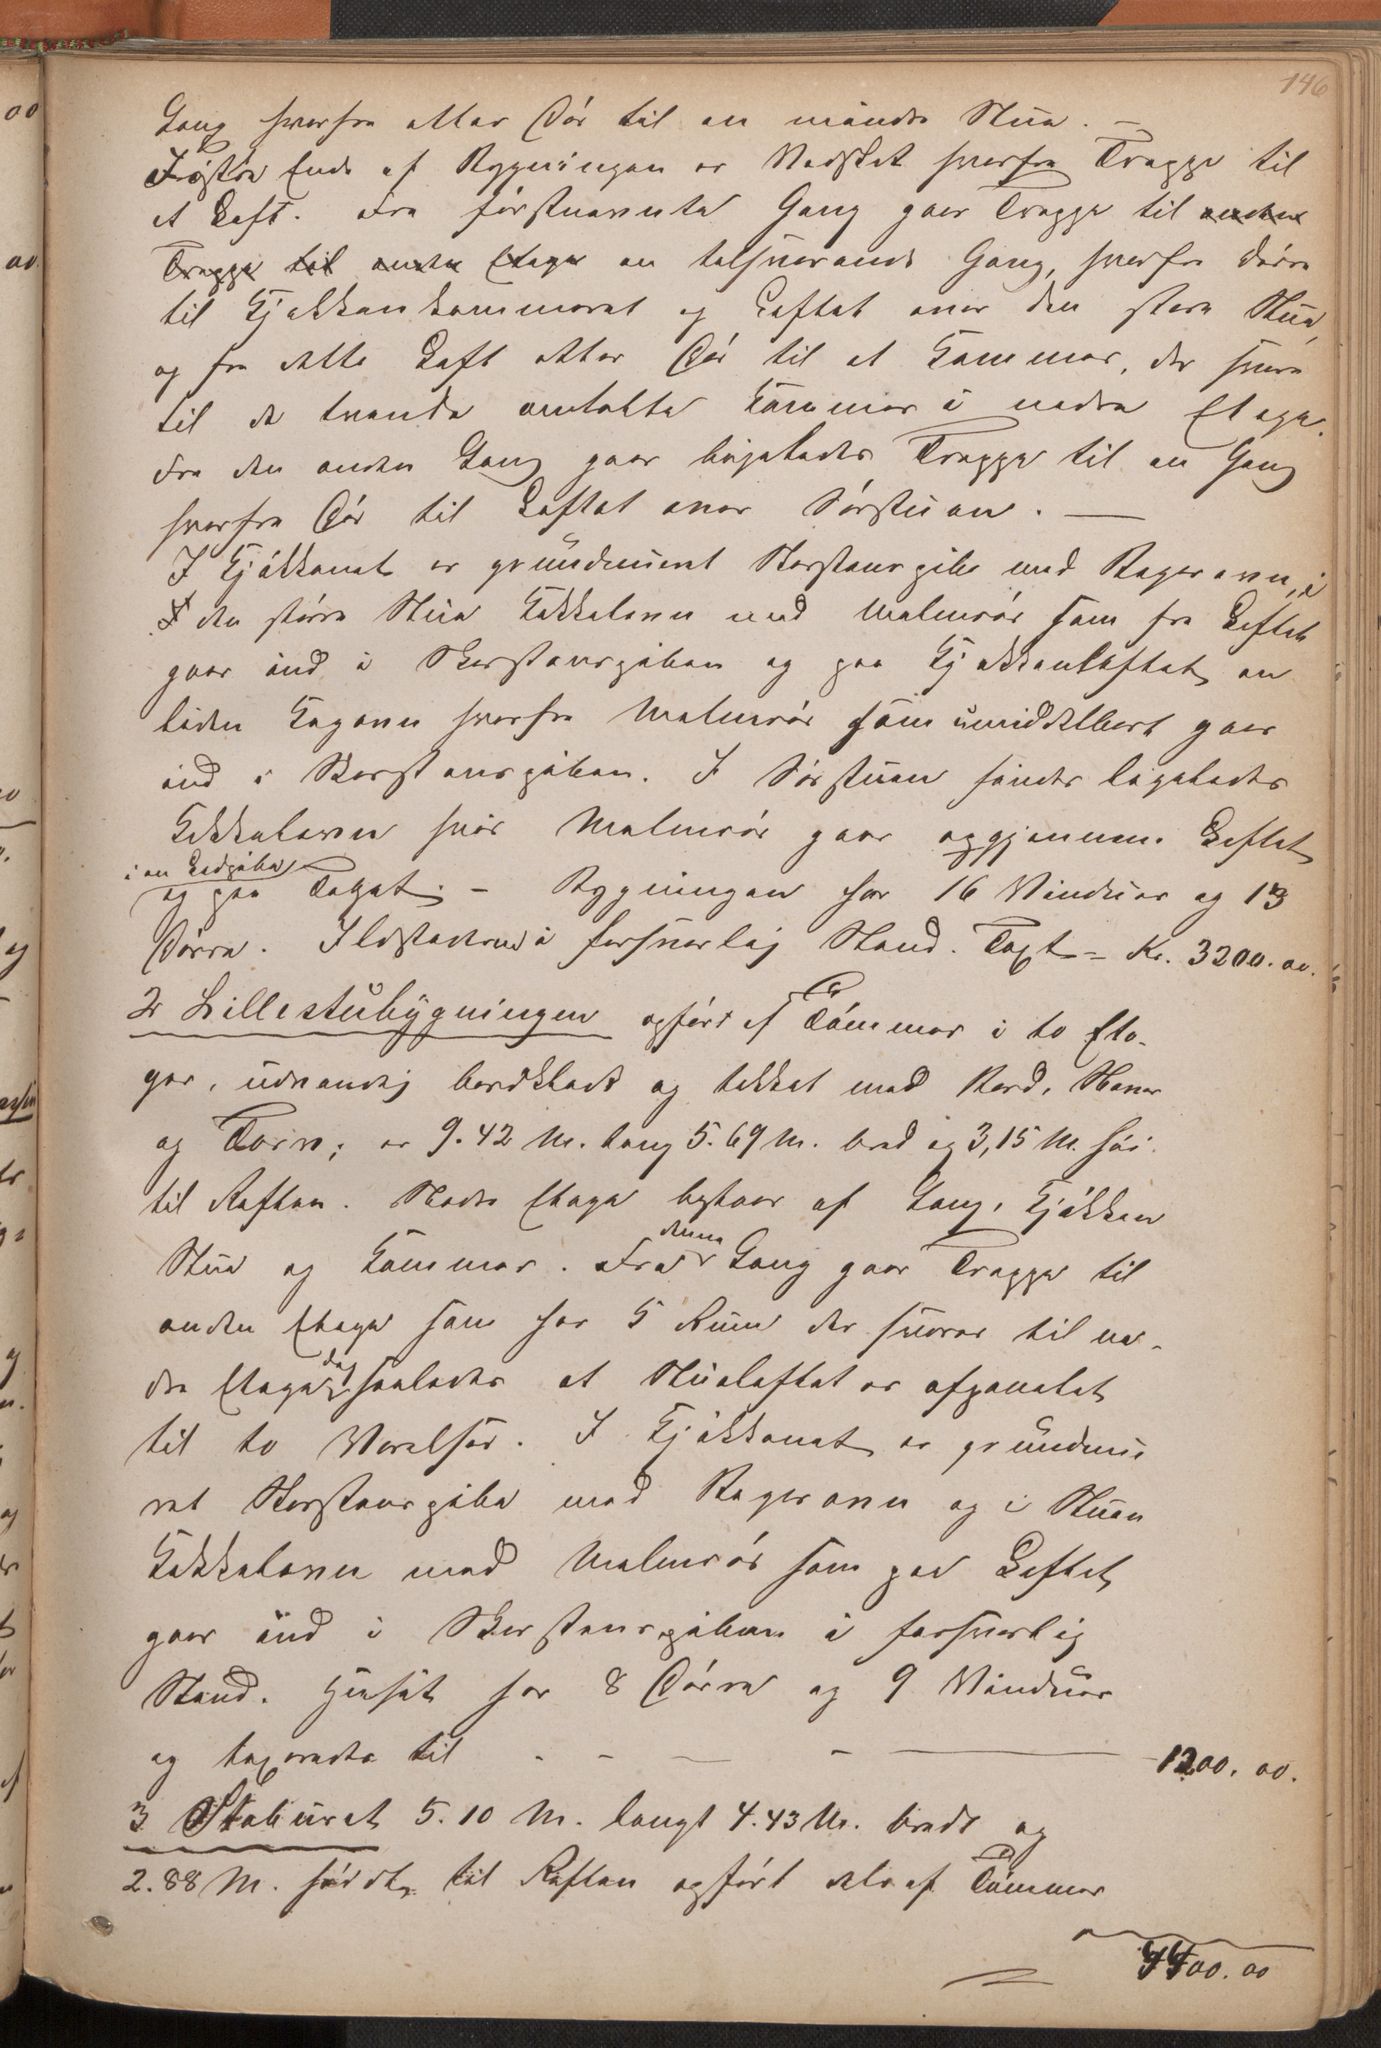 146
Gang hvorfra atter Dör til en mindre Stue. –
I östre Ende af Bygningen er Vedskot hvorfra Trappe til
et Loft. Fra förstnævnte Gang gaar Trappe til anden
Trappe til anden Etage en tilsvarende Gang, hvorfra Dörre
til Kjøkkenkammeret og Loftet over den store Stue,
og fra dette Loft atter Dör til et Kammer, der svare
til de tvende omtalte Kammer i nedre Etage.
Fra den anden Gang gaar ligeledes Trappe til en Gang
hvorfra Dör til Loftet over Sörstuen. —
I Kjökkenet er grundmuret Skorstenspibe med Bagerovn, i
I den större Stue Kakkelovn med Malmrör som fra Loftet
gaar ind i Skorstenspiben og paa Kjøkkenloftet en
liden Kogovn hvorfra Malmrör som umiddelbart gaar
ind i Skorstenspiben. I Sörstuen findes ligeledes
Kakkelovn hvis Malmrör gaar op gjennem Loftet
i en Lerpibe
og paa Taget. – Bygningen har 16 Vinduer og 13
Dörre. Ildstederne i forsvarlig Stand. Taxt = Kr. 3200.00.
2 Lillestubygningen opfört af Tömmer i to Eta-
ger, udvendig bordklædt og tækket med Bord, Næver
og Torv; er 9.42 M. lang 5.69 M. bred og 3,15 M. höi
til Raften. Nedre Etage bestaar af Gang, Kjökken
Stue og Kammer. Fra denne Gang gaar Trappe til
anden Etage som har 5 Rum der svarer til ne-
dre Etage dog saaledes at Stueloftet er afpanelet
til to Værelser. I Kjökkenet er grundmu
ret Skorstenspibe med Bagerovn og i Stuen
Kakkelovn med Malmrör som paa Loftet
gaar ind i Skorstenspiben i forsvarlig
Stand. Huset har 8 Dörre og 9 Vinduer
og taxeredes til - - — - —— 1200.00.
3 Staburet 5.10 M. langt 4.43 M. bredt og
2.88 M. höidt til Raften opfört dels af Tömmer
4400.00